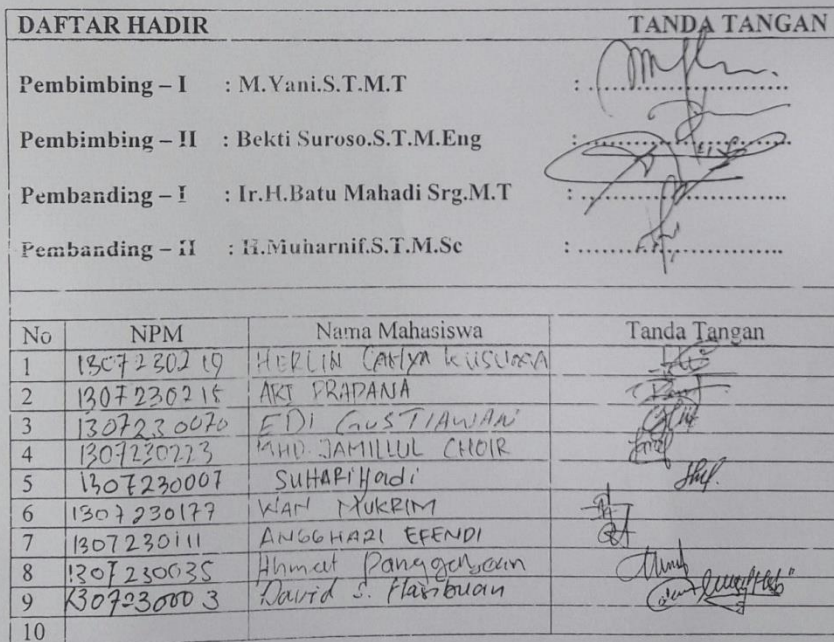 DAFTAR HADIR TANDA TANGAN
Pembimbing – I : M.Yani.S.T.M.T : ..............................
Pembimbing – II : Bekti Suroso.S.T.M.Eng : ..............................
Pembanding – I : Ir.H.Batu Mahadi Srg.M.T : ..............................
Pembanding – II : H.Muharnif.S.T.M.Sc : ..............................
No NPM Nama Mahasiswa Tanda Tangan
1 1307230219 HERLIN CAHYA KUSUMA
2 1307230215 ARI PRADANA
3 1307230070 EDI GUSTIAWAN
4 1307230223 MHD. JAMILLUL CHOIR
5 1307230007 SUHARIHadi
6 1307230177 WAN MUKRIM
7 1307230111 ANGGHARI EFENDI
8 1307230035 Ahmat Panggabean
9 1307230003 David S. Hasibuan
10